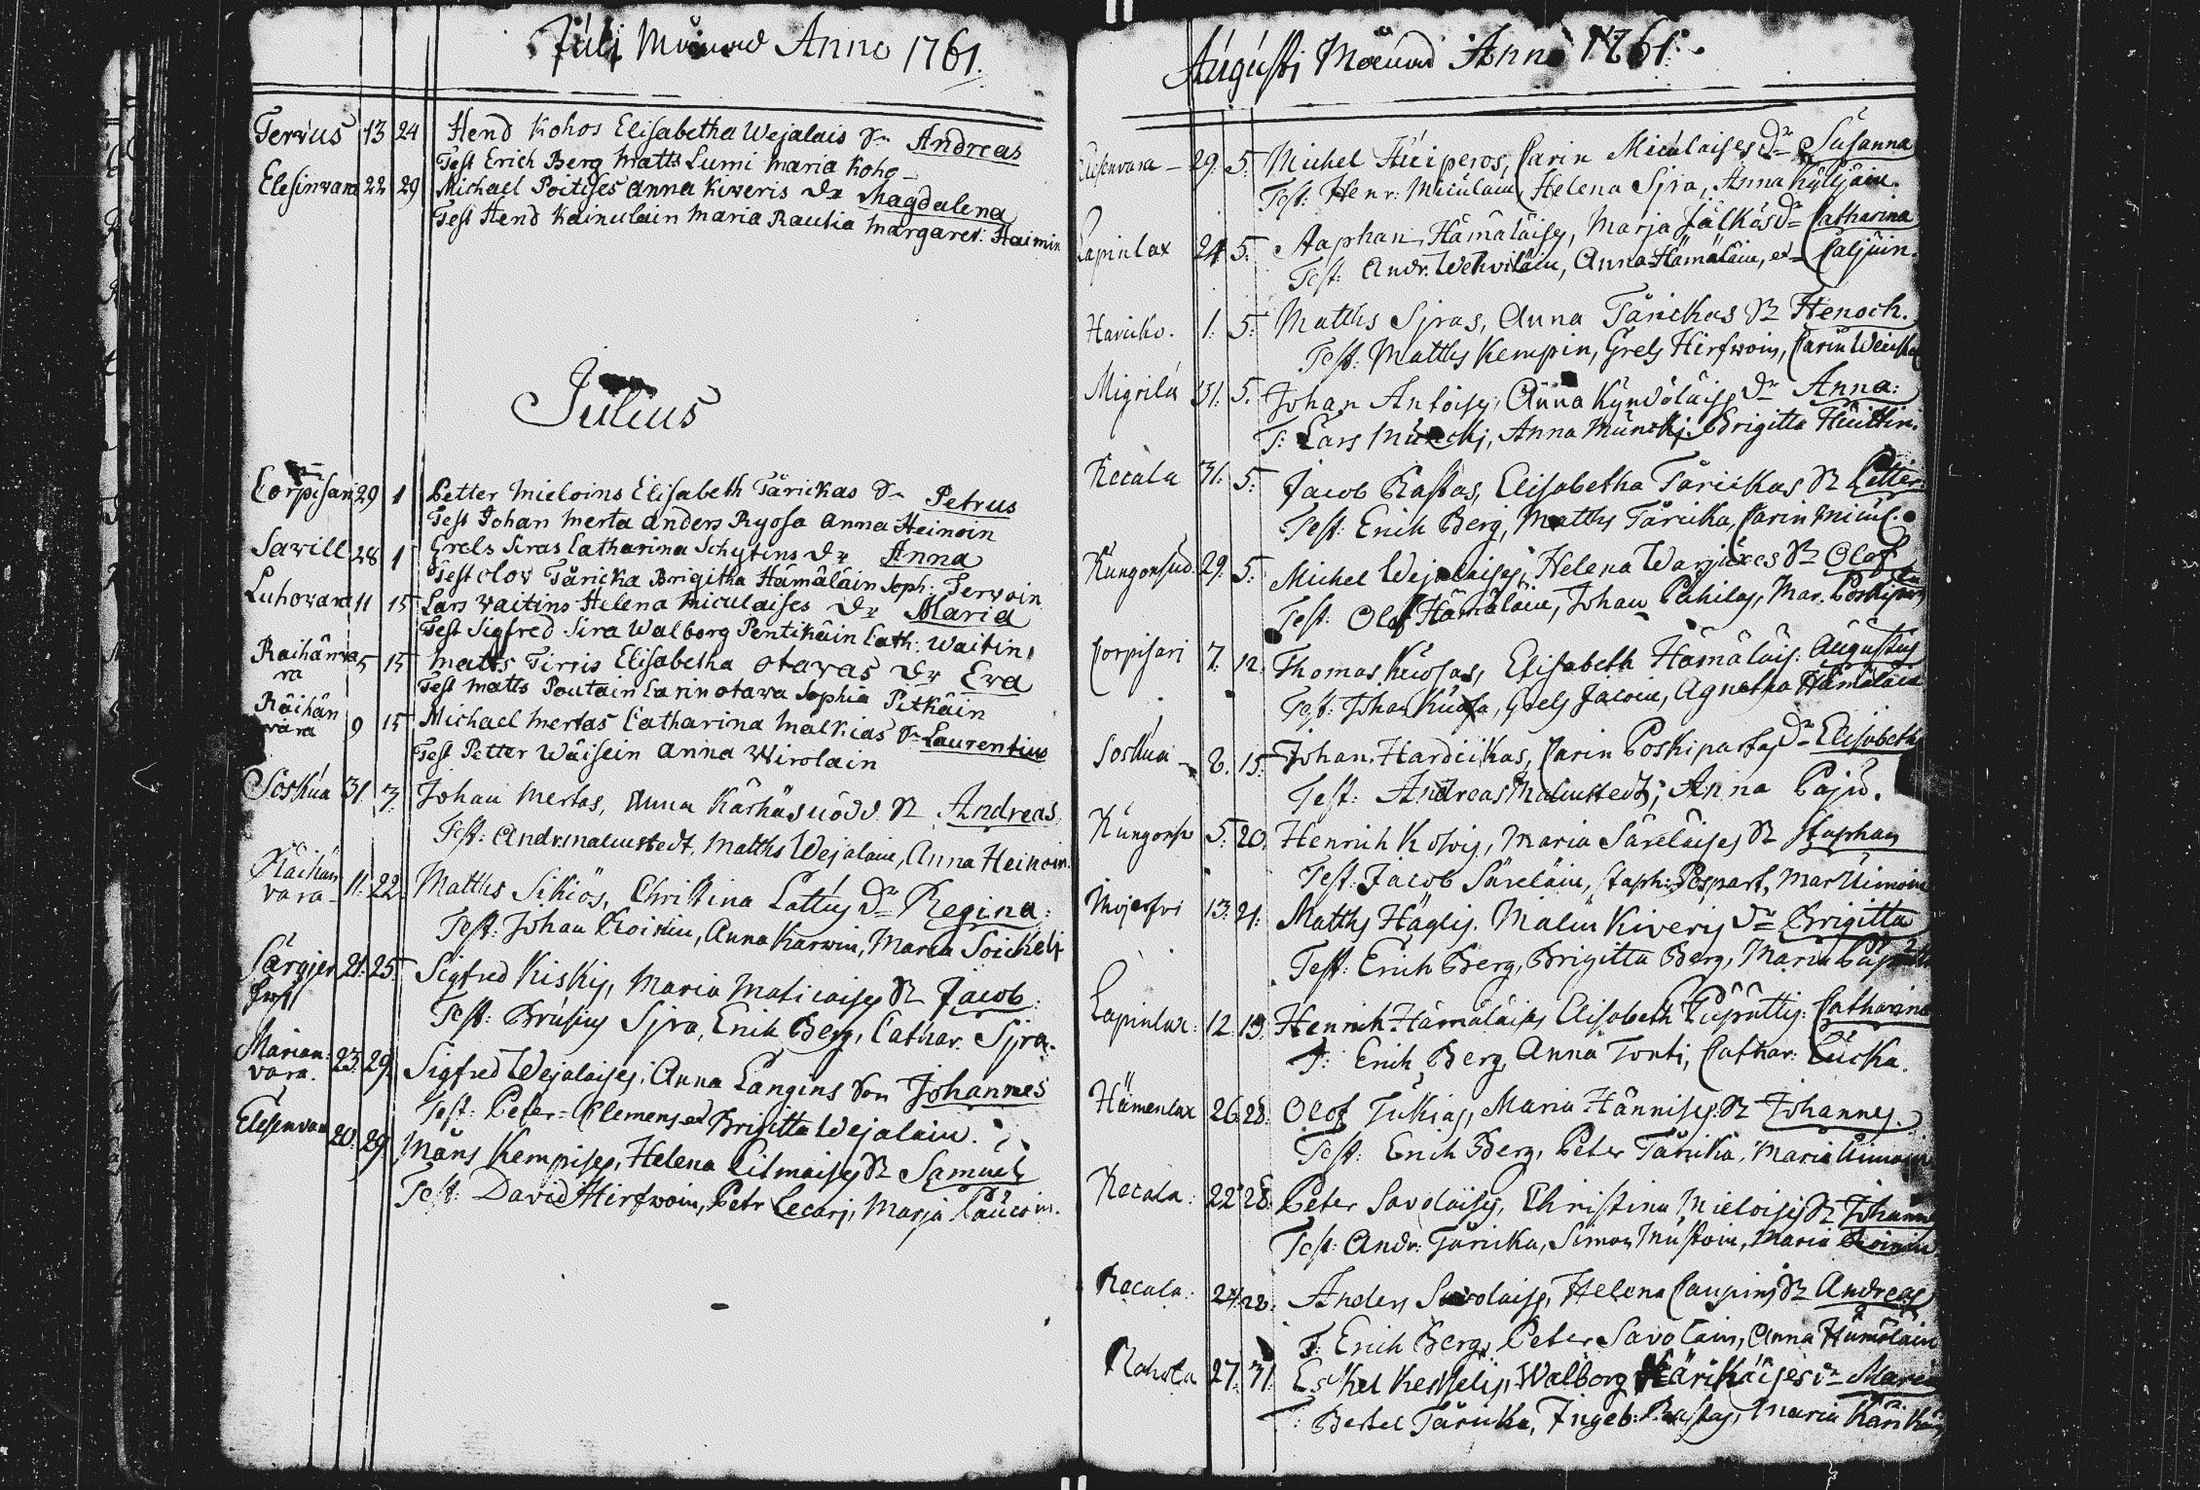 Julij Månad Anno 1761.
Tervus 13 24 Hend Kohos Elisabetha Wejalais Sn Andreas
Test Erich Berg Matts Lumi Maria Koho
Elesinvara 22 29 Michael Poitises Anna Kiweris Dr Magdalena
Test Hend Kainulain Maria Rautia Margaret: Haimin
Julius
Corpisari 29 1 Petter Mieloins Elisabeth Tårickas Sn Petrus
Test Johan Merta Anders Ryosa Anna Heinoin
Savill 28 1 Grels Siras Catharina Schytins Dr Anna
Test Olov Tåricka Brigitha Hämäläin Soph: Terwoin
Luhovara 11 15 Lars Waitins Helena Miculaises Dr Maria
Test Sigfred Sira Walborg Pentikäin Cath: Waitin
Raihäwa 5 15 Matts Tirris Elisabetha Otavas Dr Eva
ra Test Matts Poutain Carin Otawa Sophia Pitkäin
Räihän 9 15 Michael Mertas Catharina Malkias Sn Laurentius
wara Test Petter Wäisein Anna Wirolain
Soskua 31 7. Johan Mertas, Anna Kärhäs Sn Andreas
Test: Andr. Malmstedt, Matths Wejalain, Anna Heinoin.
Räihän
vara 11. 22. Matths Sikiös, Christina Lattus Dr Regina:
Test: Johan Roinin, Anna Karwin, Maria Soickeli
21. 25. Sigfred Kiskis, Maria Maticaises Sn Jacob:
Test: Brusius Sjra, Erich Berg, Cathar. Sjra.
Marian:
vara. 23. 29. Sigfred Wejalaises, Anna Langins Son Johannes
Test: Peter Clemens et Brigitta Wejalain.
Elesenvara 20. 29. Måns Kempises, Helena Pilmaises Sn Samuel
Test: David Hirfwoin, Petr Lecarj, Marja
Augusti Månad Anno 1761.
Elisenvara 29. 5. Michel Huiperos, Carin Miculaises Dr Susanna
Test: Henr: Miculain, Helena Sjra, Anna
Lapinlax 24 5. Staphan Hämäläises, Marja Jälkös Dr Catharina
Test: Andr. Wehviläin, Anna Hämäläin, et Caljuin.
Hariko. 1. 5. Matths Sjras, Anna Tårickas Sn Henoch.
Test: Matths Kempin, Grels Hirfwoin, Carin
Migrilä 31. 5. Johan Antoises, Anna Kyndöläises Dr Anna:
T: Lars Munckj, Anna Munckj, Brigitta Huittin.
Recala 31. 5. Jacob Rastas, Elisabetha Tårickas Sn Petter
Test: Erich Berg, Matths Tåricka, Carin Micul
Kungonsud. 29. 5. Michel Wejalaises, Helena Warjuxes Sn Olof
Test: Olof Hämäläin, Johan Pukilas, Mar.
Corpisari 7. 12. Thomas Kuosas, Elisabeth Hämäläis: Augustus
Test: Johan Kuosa, Grels Jacoin, Agnetha Hämäläin
Soskua 8. 15. Johan Hardcikas, Carin Poskipartas Dr Elisabeth
Test: Andreas Malmstedt, Anna Paju.
Kungons 5. 20. Henrich Kosvis, Maria Säreläises Sn Staphan
Test: Jacob Säreläin, Staph: Pospart, Mar Uimoin
13. 21. Matths Häglis, Malin Kiveris Dr Brigitta
Test: Erich Berg, Brigitta Berg, Maria
Lapinlax: 12 19. Henrich Hämäläises Elisabeth Catharina
T: Erich Berg, Anna Tonti, Cathar: Cucka.
Hämenlax 26 28. Olof Tukias, Maria Hännises Sn Johannes.
Test: Erich Berg, Peter Tåricka, Maria Uimoin
Recala: 22 28. Peter Savolaises, Christina Mieloises Sn Johannes
Test: Andr: Tåricka, Simon Mustoin, Maria Roinin
Recala: 24 28. Anders Savolaises, Helena Caupins Sn Andreas
T: Erich Berg, Peter Savolain, Anna Hämäläin
Rahola 27. 31. Eskel Keskelis, Walborg Kärikäises Dr Maria
T: Bertel Tåricka, Ingeb: Rastas, Maria Kärikäin